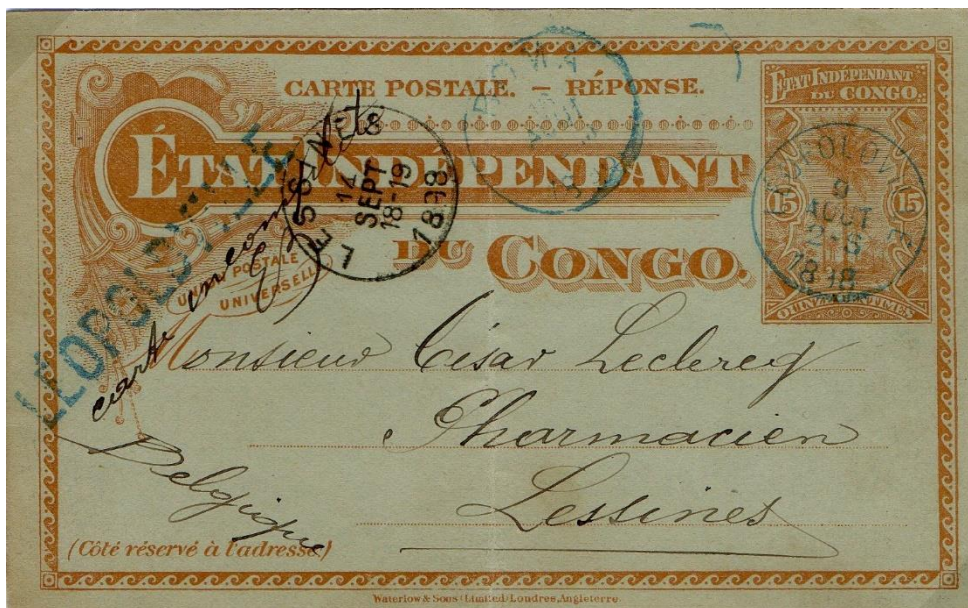 CARTE POSTALE. — RÉPONSE.
ÉTAT INDÉPENDANT
DU CONGO.
UNION POSTALE
UNIVERSELLE
ÉTAT INDÉPENDANT
DU CONGO.
15 15
QUINZE CENTIMES
LÉOPOLDVILLE
9
AOUT
2-5
1898
BOMA
LESSINES
14
SEPT
18-19
1898
LÉOPOLDVILLE
carte incomplète
Monsieur César Leclercq
Pharmacien
Lessines
Belgique
(Côté réservé à l'adresse.)
Waterlow & Sons Limited, Londres, Angleterre